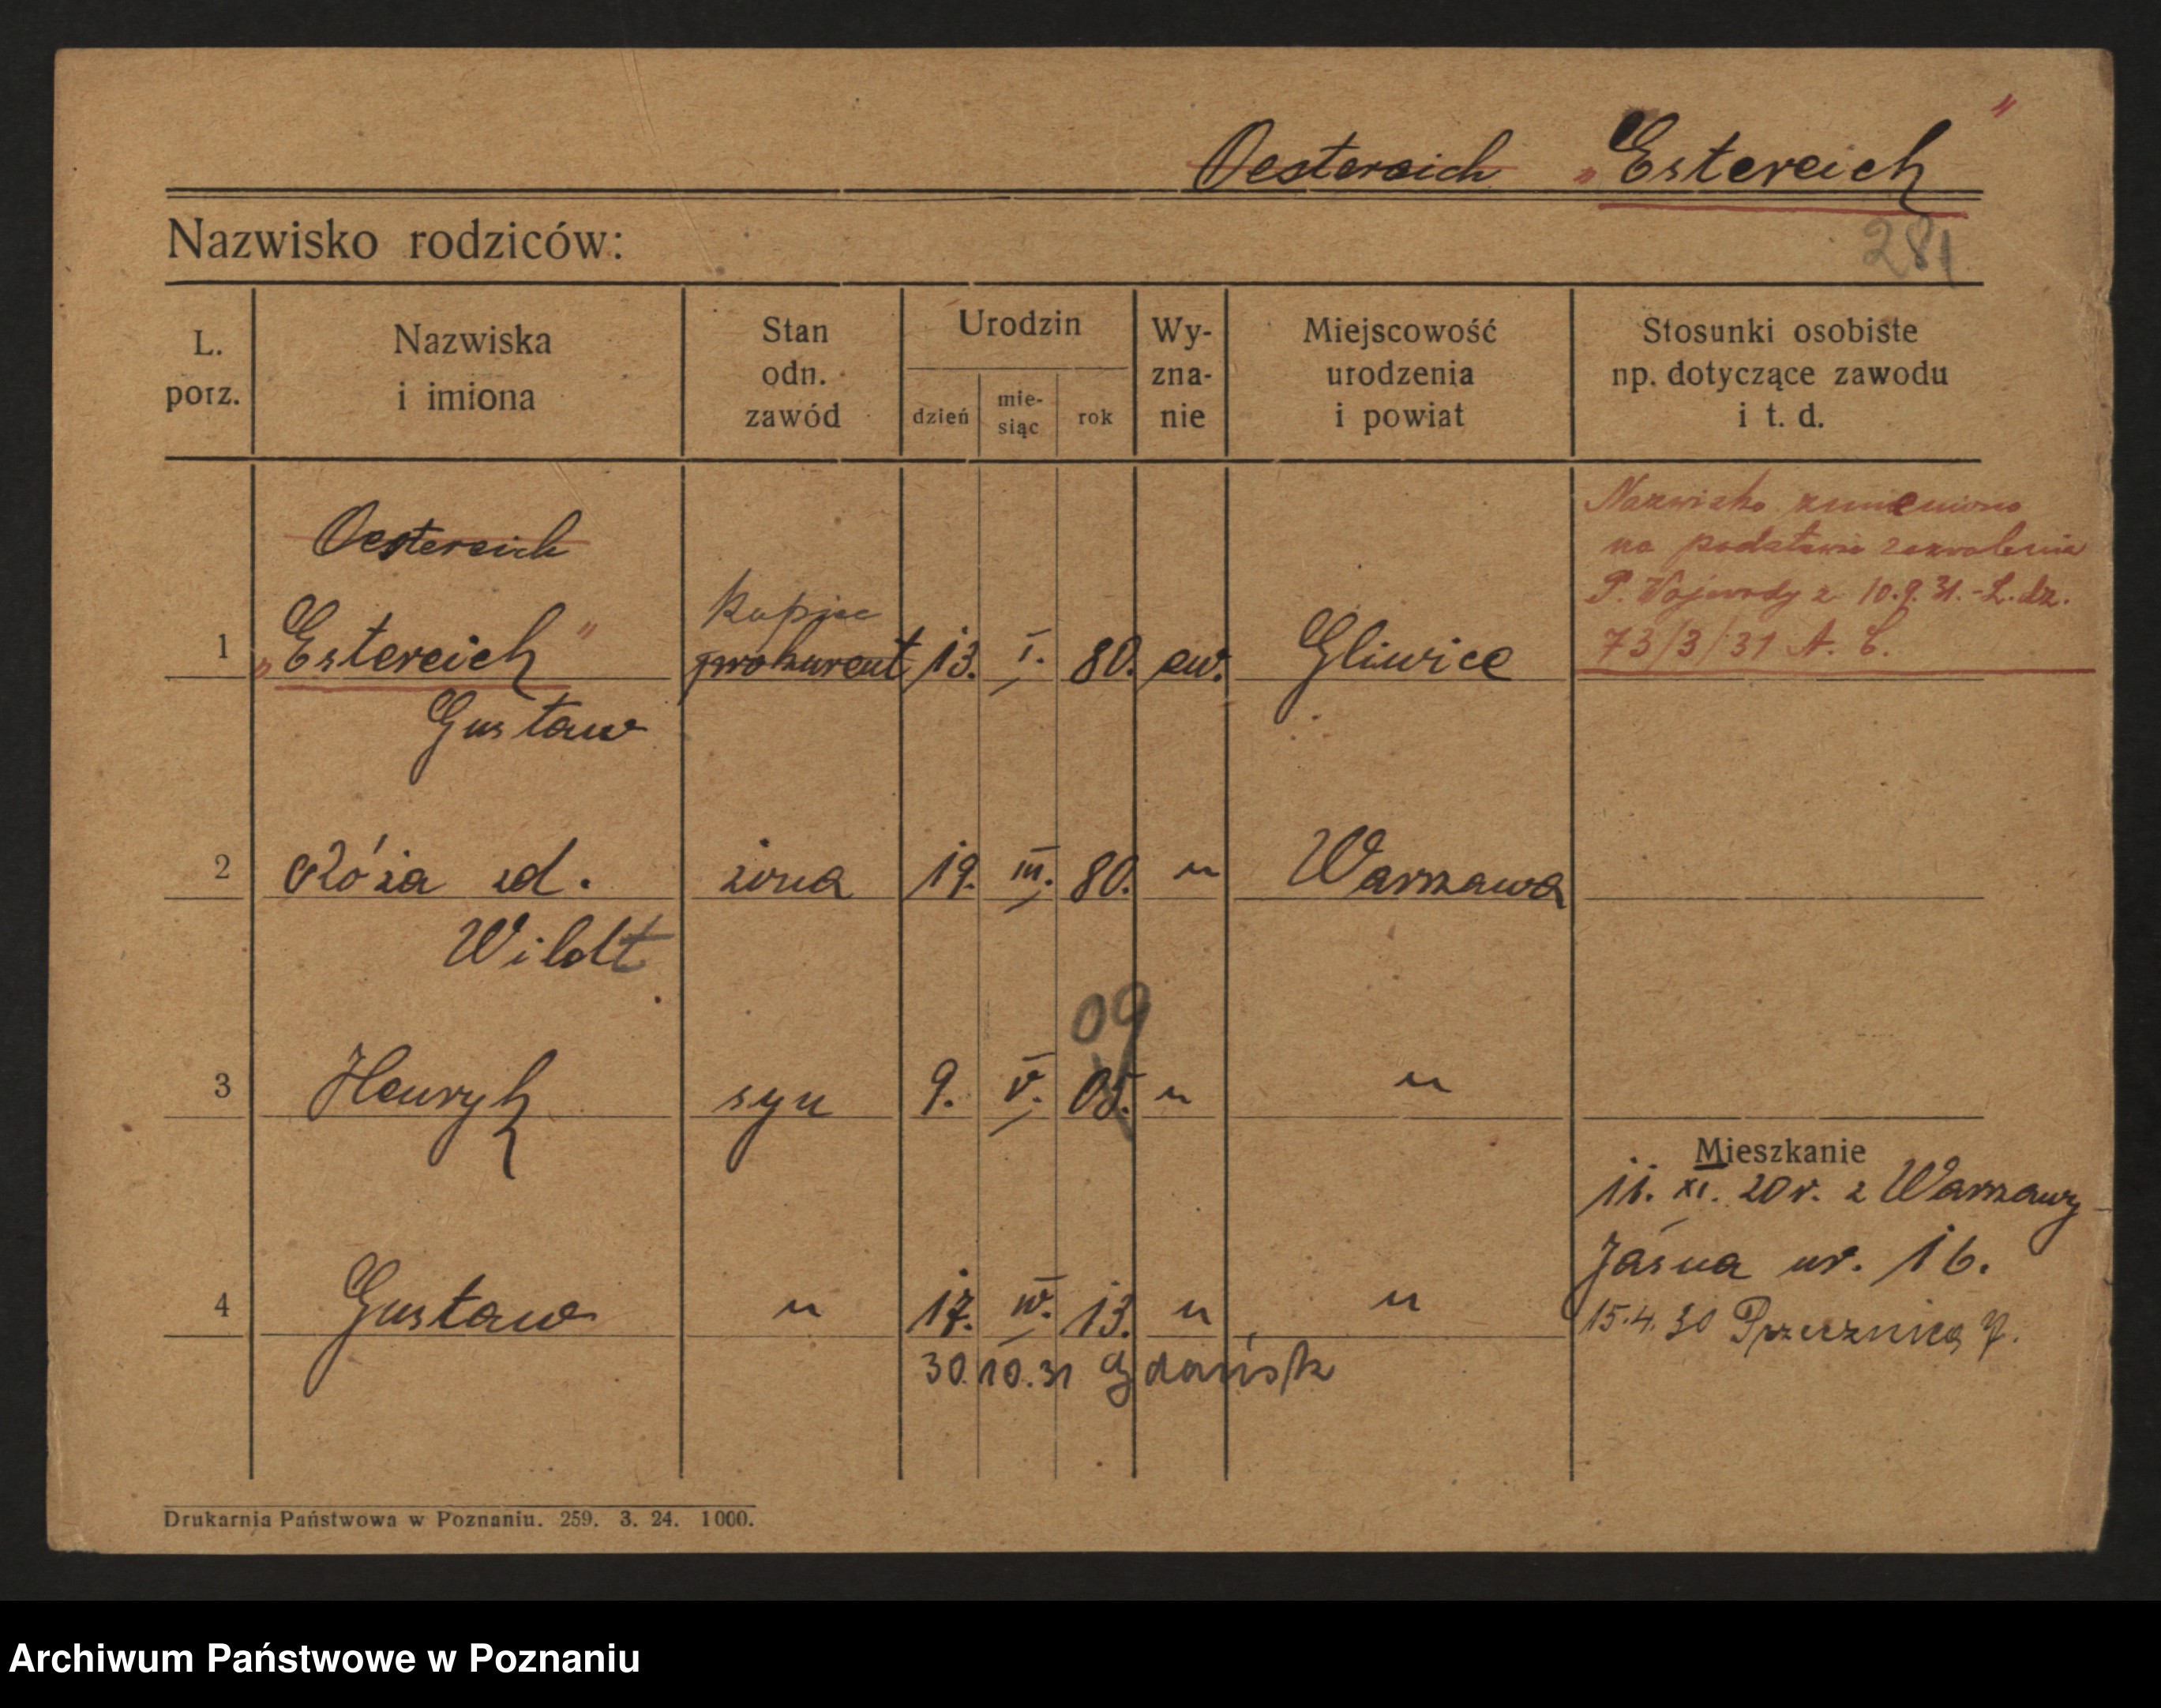 Oestereich „Estereich"
Nazwisko rodziców:
281
L. porz.
Nazwiska i imiona
Stan odn. zawód
Urodzin
dzień
mie-siąc
rok
Wy-zna-nie
Miejscowość urodzenia i powiat
Stosunki osobiste np. dotyczące zawodu i t. d.
Nazwisko zmieniono
na podstawie zezwolenia
P. Wojewody z 10.9.31.-L.dz.
73/3/31 A. C.
Oestereich
kupiec
1 „Estereich" prokurent 13. I. 80. ew. Gliwice
Gustaw
2 Róża zd. żona 19. III. 80. " Warszawa
Wildt
09
3 Henryk syn 9. V. 05. " "
Mieszkanie
11. XI. 20 r. z Warszawy
Jasna nr. 16.
4 Gustaw " 17. IV. 13. " "
15.4.30 Przecznica 7.
30.10.31 Gdańsk
Drukarnia Państwowa w Poznaniu. 259. 3. 24. 1000.
Archiwum Państwowe w Poznaniu